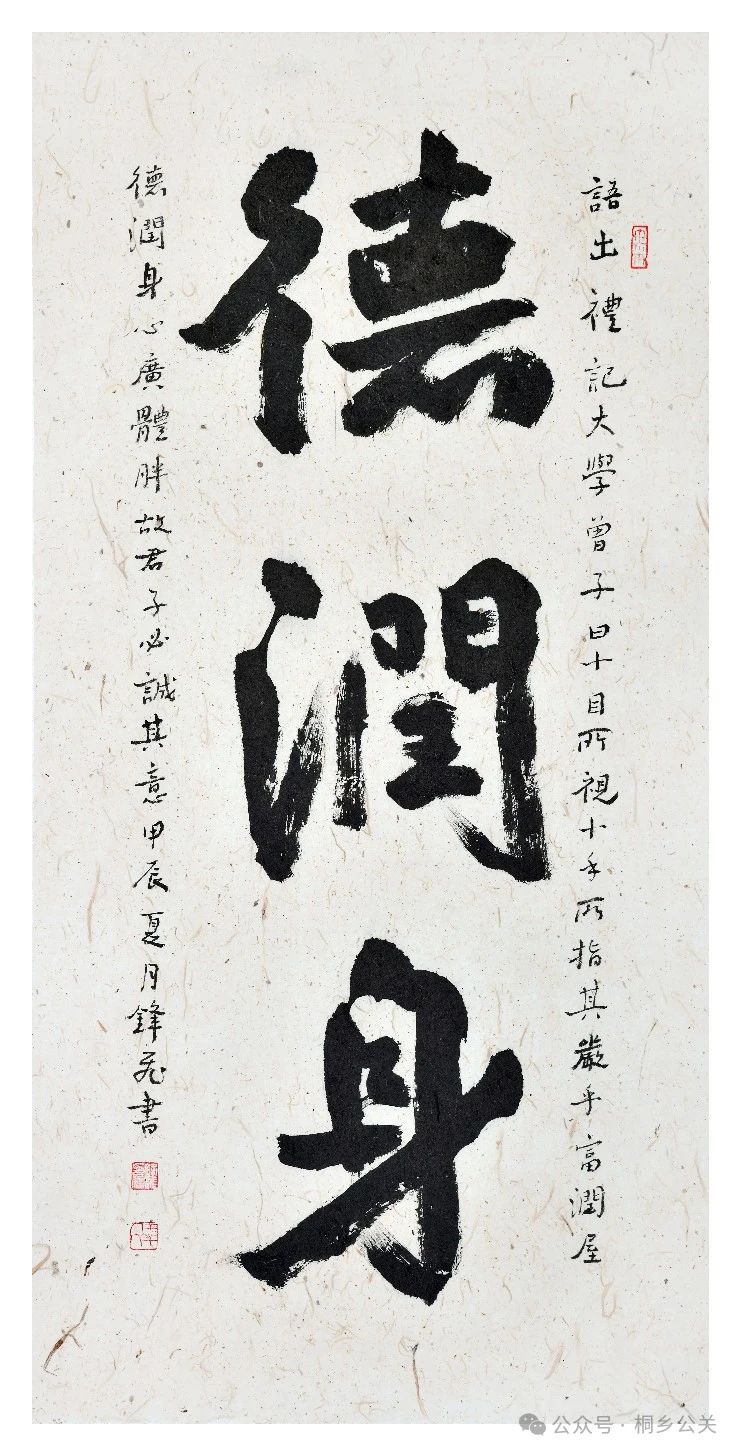 語出禮記大學曾子曰十目所視十手所指其嚴乎富潤屋
德潤身
德潤身心廣體胖故君子必誠其意甲辰夏月鋒飛書
公众号·桐乡公关